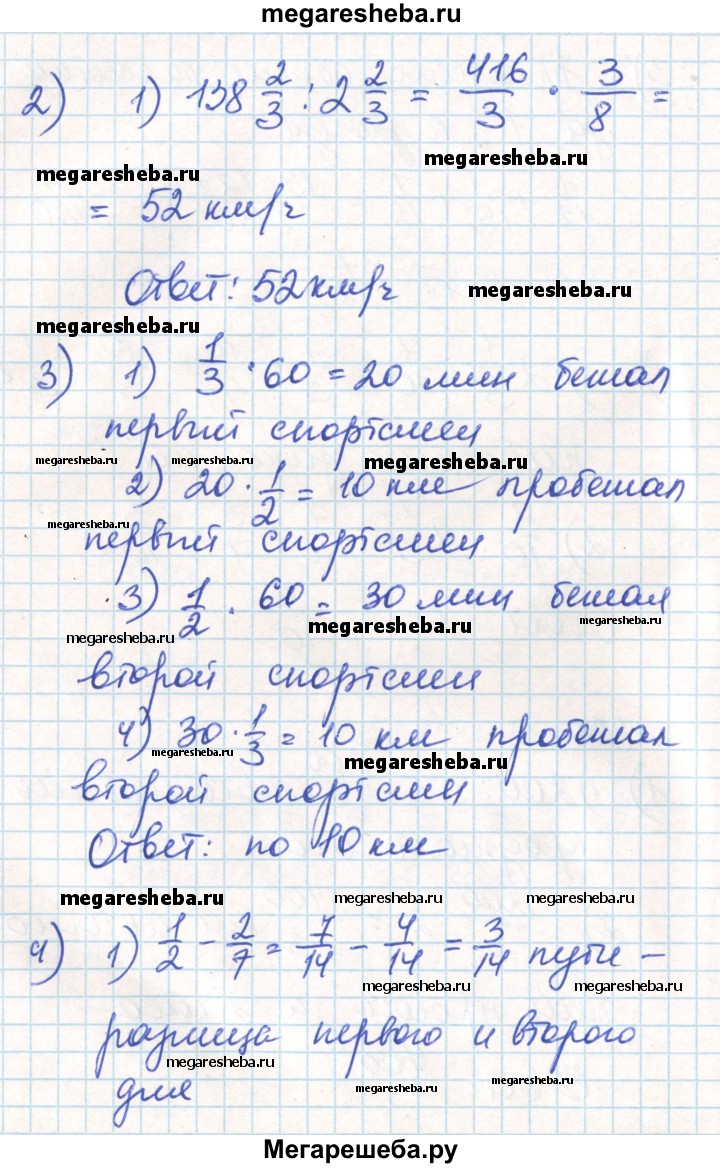 megaresheba.ru
2) 1) 138 2/3 : 2 2/3 = 416/3 · 3/8 =
megaresheba.ru
megaresheba.ru
= 52 км/ч
Ответ: 52 км/ч
megaresheba.ru
megaresheba.ru
3) 1) 1/3 · 60 = 20 мин бежал
первый спортсмен
megaresheba.ru megaresheba.ru megaresheba.ru
2) 20 · 1/2 = 10 км пробежал
megaresheba.ru
первый спортсмен
3) 1/2 · 60 = 30 мин бежал
megaresheba.ru megaresheba.ru
второй спортсмен
4) 30 · 1/3 = 10 км пробежал
megaresheba.ru megaresheba.ru
второй спортсмен
Ответ: по 10 км
megaresheba.ru megaresheba.ru megaresheba.ru
4) 1) 1/2 - 2/7 = 7/14 - 4/14 = 3/14 пути -
megaresheba.ru megaresheba.ru
разница первого и второго
megaresheba.ru megaresheba.ru
дня
Мегарешеба.ру